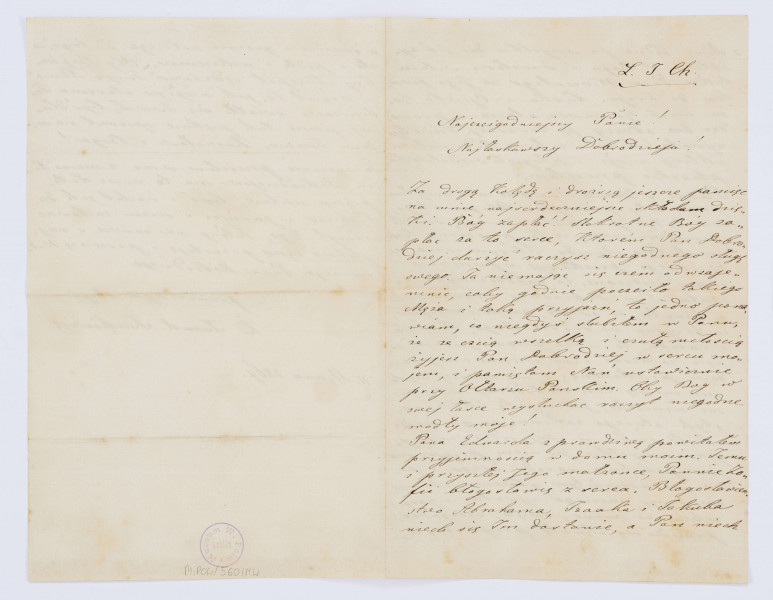 L. J. Ch.
Najczcigodniejszy Panie!
Najłaskawszy Dobrodzieju!
Za drogą kolędę i droższą jeszcze pamięć
na mnie najserdeczniejsze składam dzię-
ki. Bóg zapłać! Stokrotne Bóg za-
płać za to serce, którém Pan Dobro-
dziej darzyć raczysz niegodnego sługę
swego. Ja nie mając się czém odwzaje-
mnić, coby godnie poczciło takiego
Męża i taką przyjaźń, to jedno pona-
wiam, co niegdyś ślubiłem w Panu,
że ze czcią wszelką i czułą miłością
żyjesz Pan Dobrodziej w sercu mo-
jem, i pamiętam Nań ustawicznie
przy Ołtarzu Pańskim. Oby Bóg w
swej łasce wysłuchać raczył niegodne
modły moje!
Pana Edwarda z prawdziwą powitałem
przyjemnością w domu moim. Jemu
i przyszłej Jego małżonce, Pannie Zo-
fii błogosławię z serca. Błogosławień-
stwo Abrahama, Izaaka i Jakuba
niech się Im dostanie, a Pan niech
M.POW/560/MW